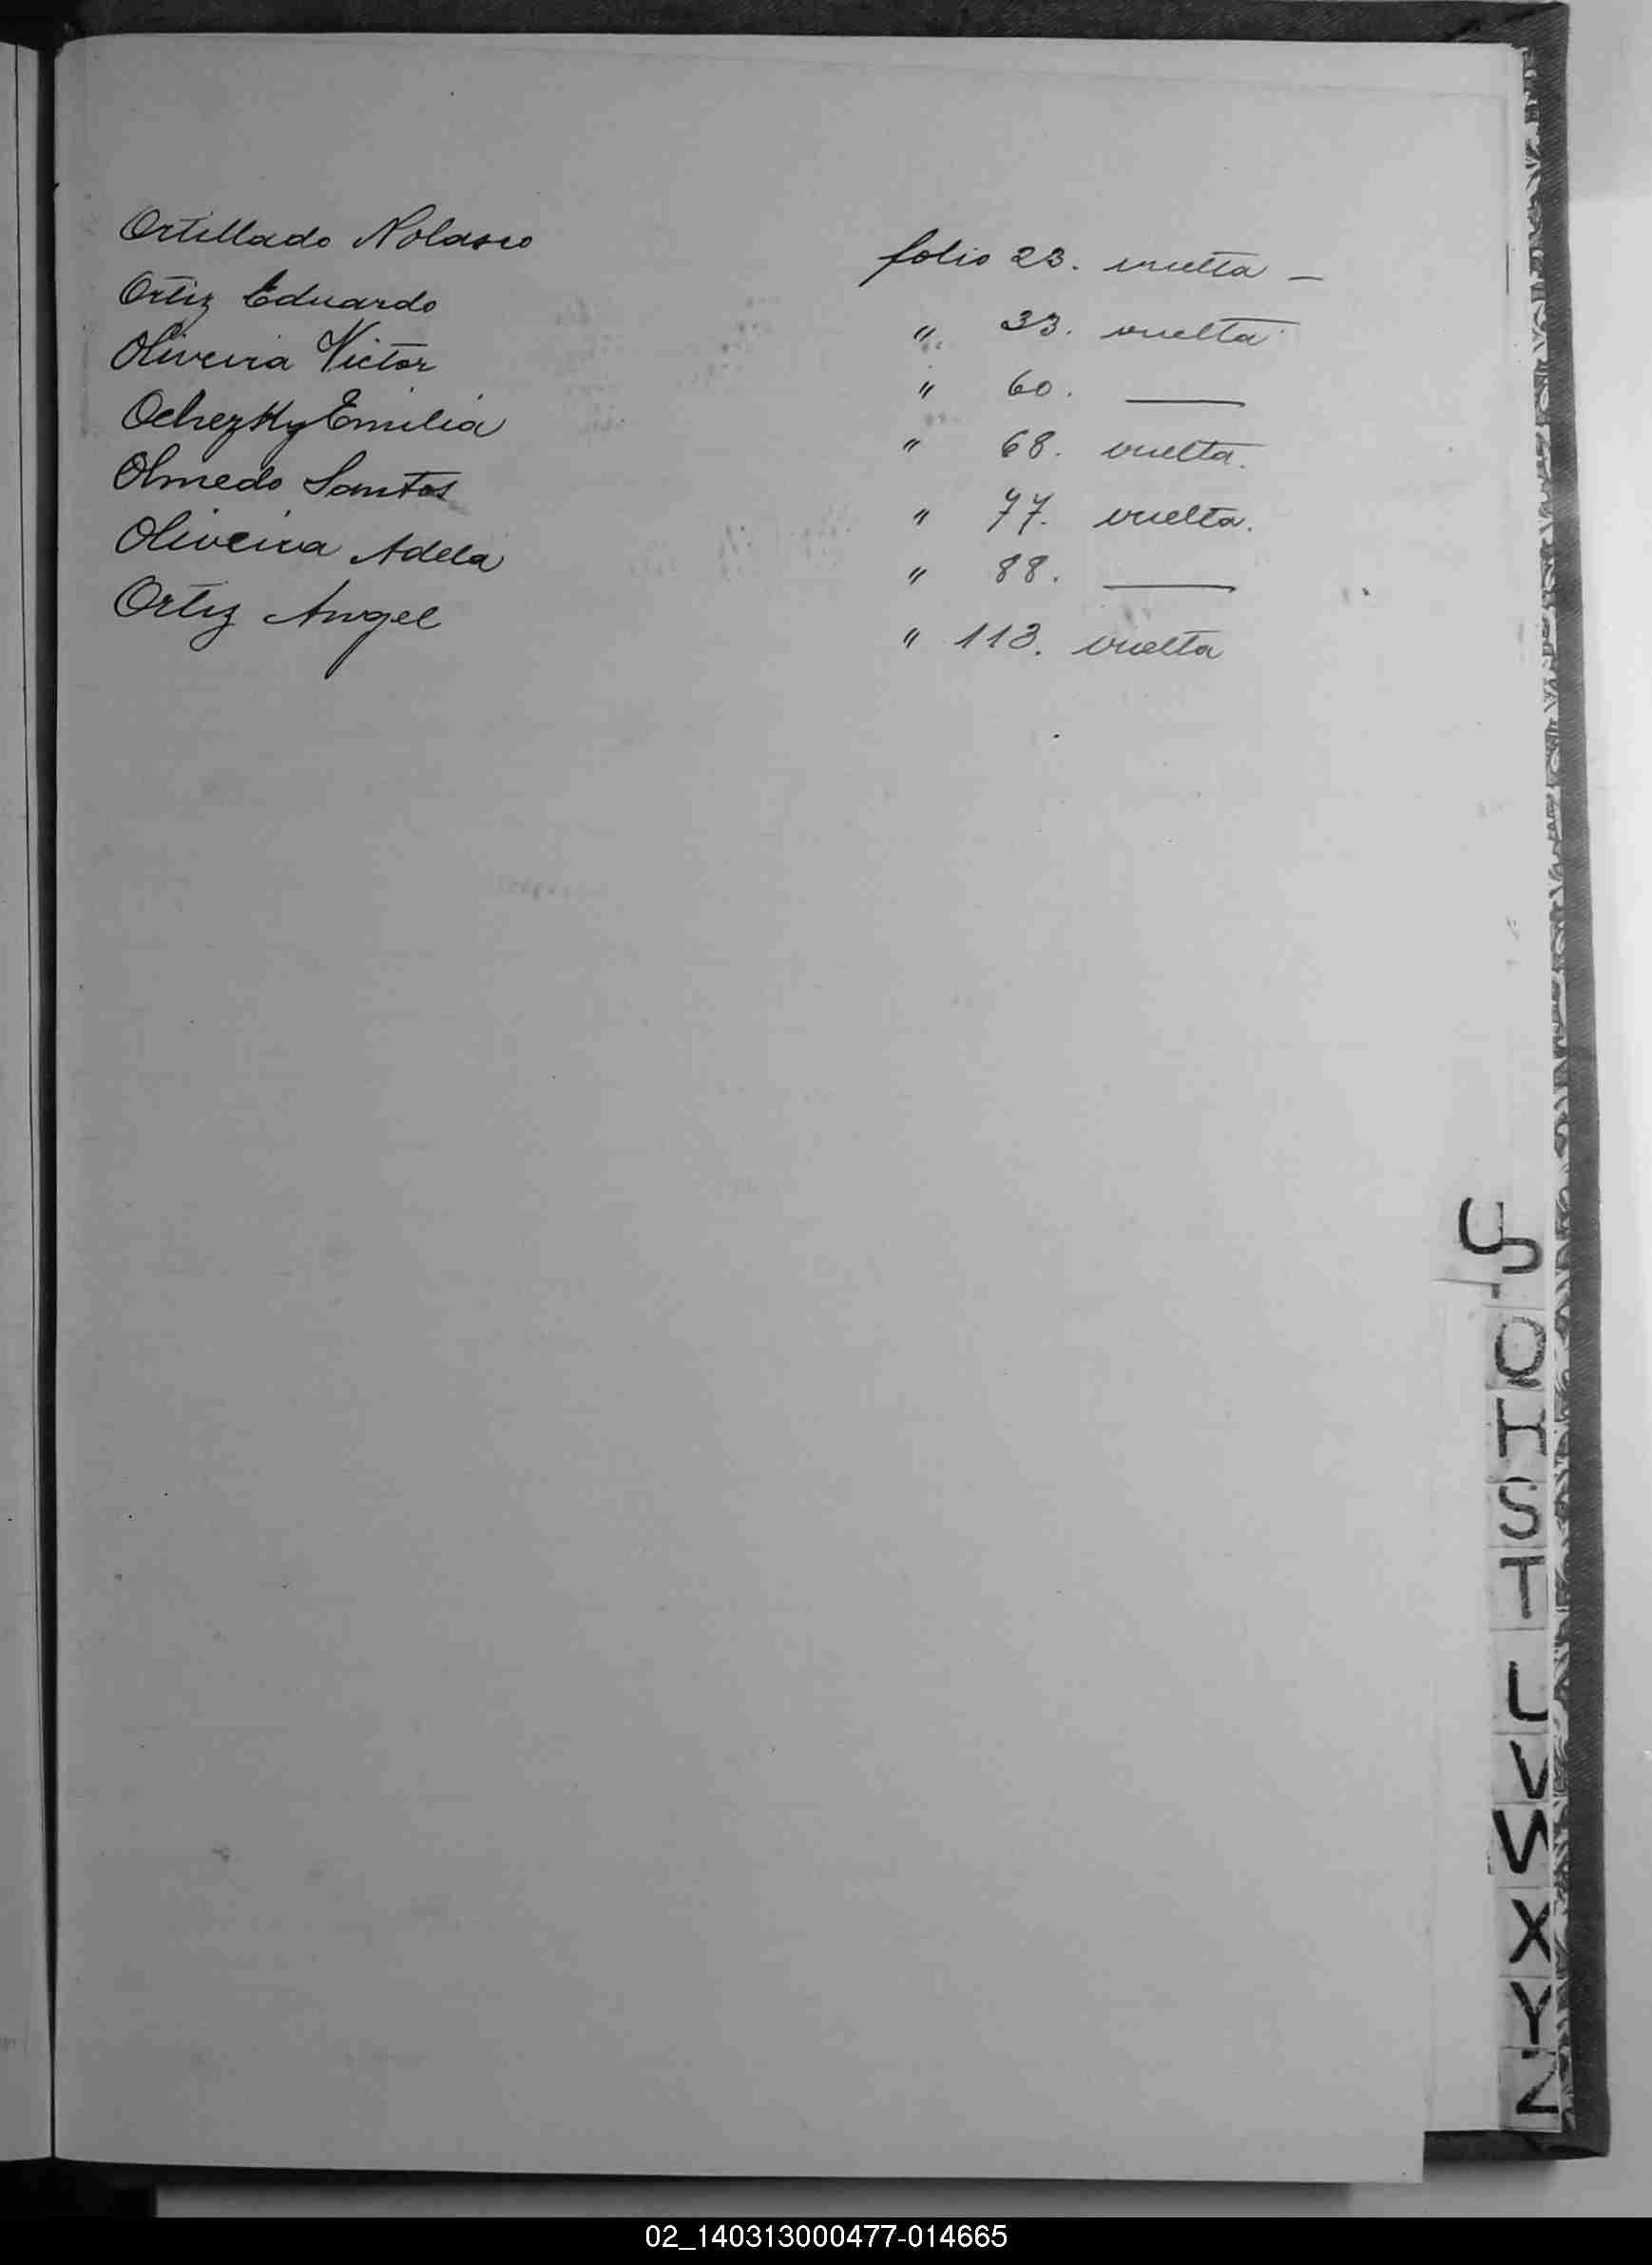 Ortellado Nolasco folio 23. vuelta —
Ortiz Eduardo " 33. vuelta
Oliveira Victor " 60. ——
Ochezky Emilia " 68. vuelta.
Olmedo Santos " 77. vuelta.
Oliveira Adela " 88. ——
Ortiz Angel " 113. vuelta
S
T
V
W
X
Y
Z
02_140313000477-014665